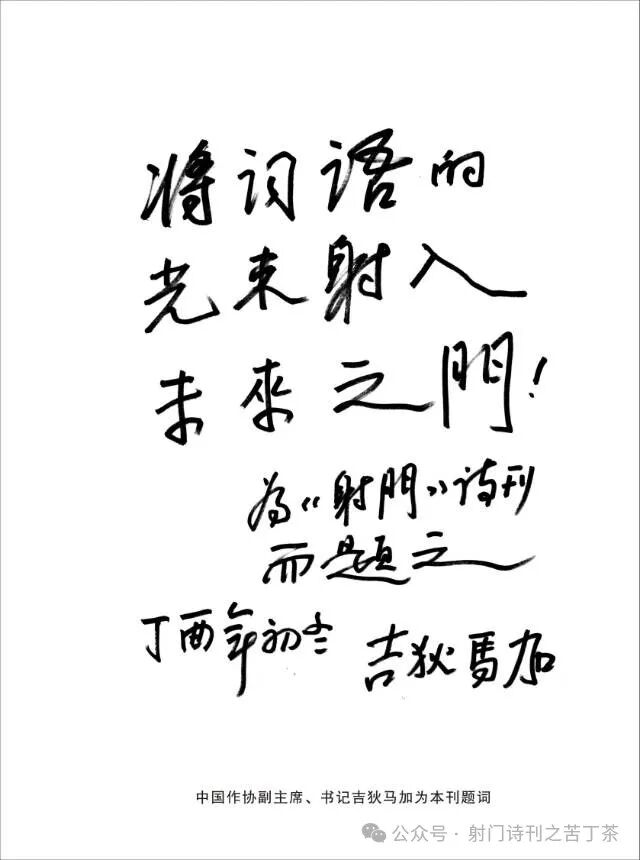 将词语的
光束射入
未來之門!
为《射門》诗刊
而题之
丁酉年初冬
吉狄馬加
中国作协副主席、书记吉狄马加为本刊题词
公众号·射门诗刊之苦丁茶